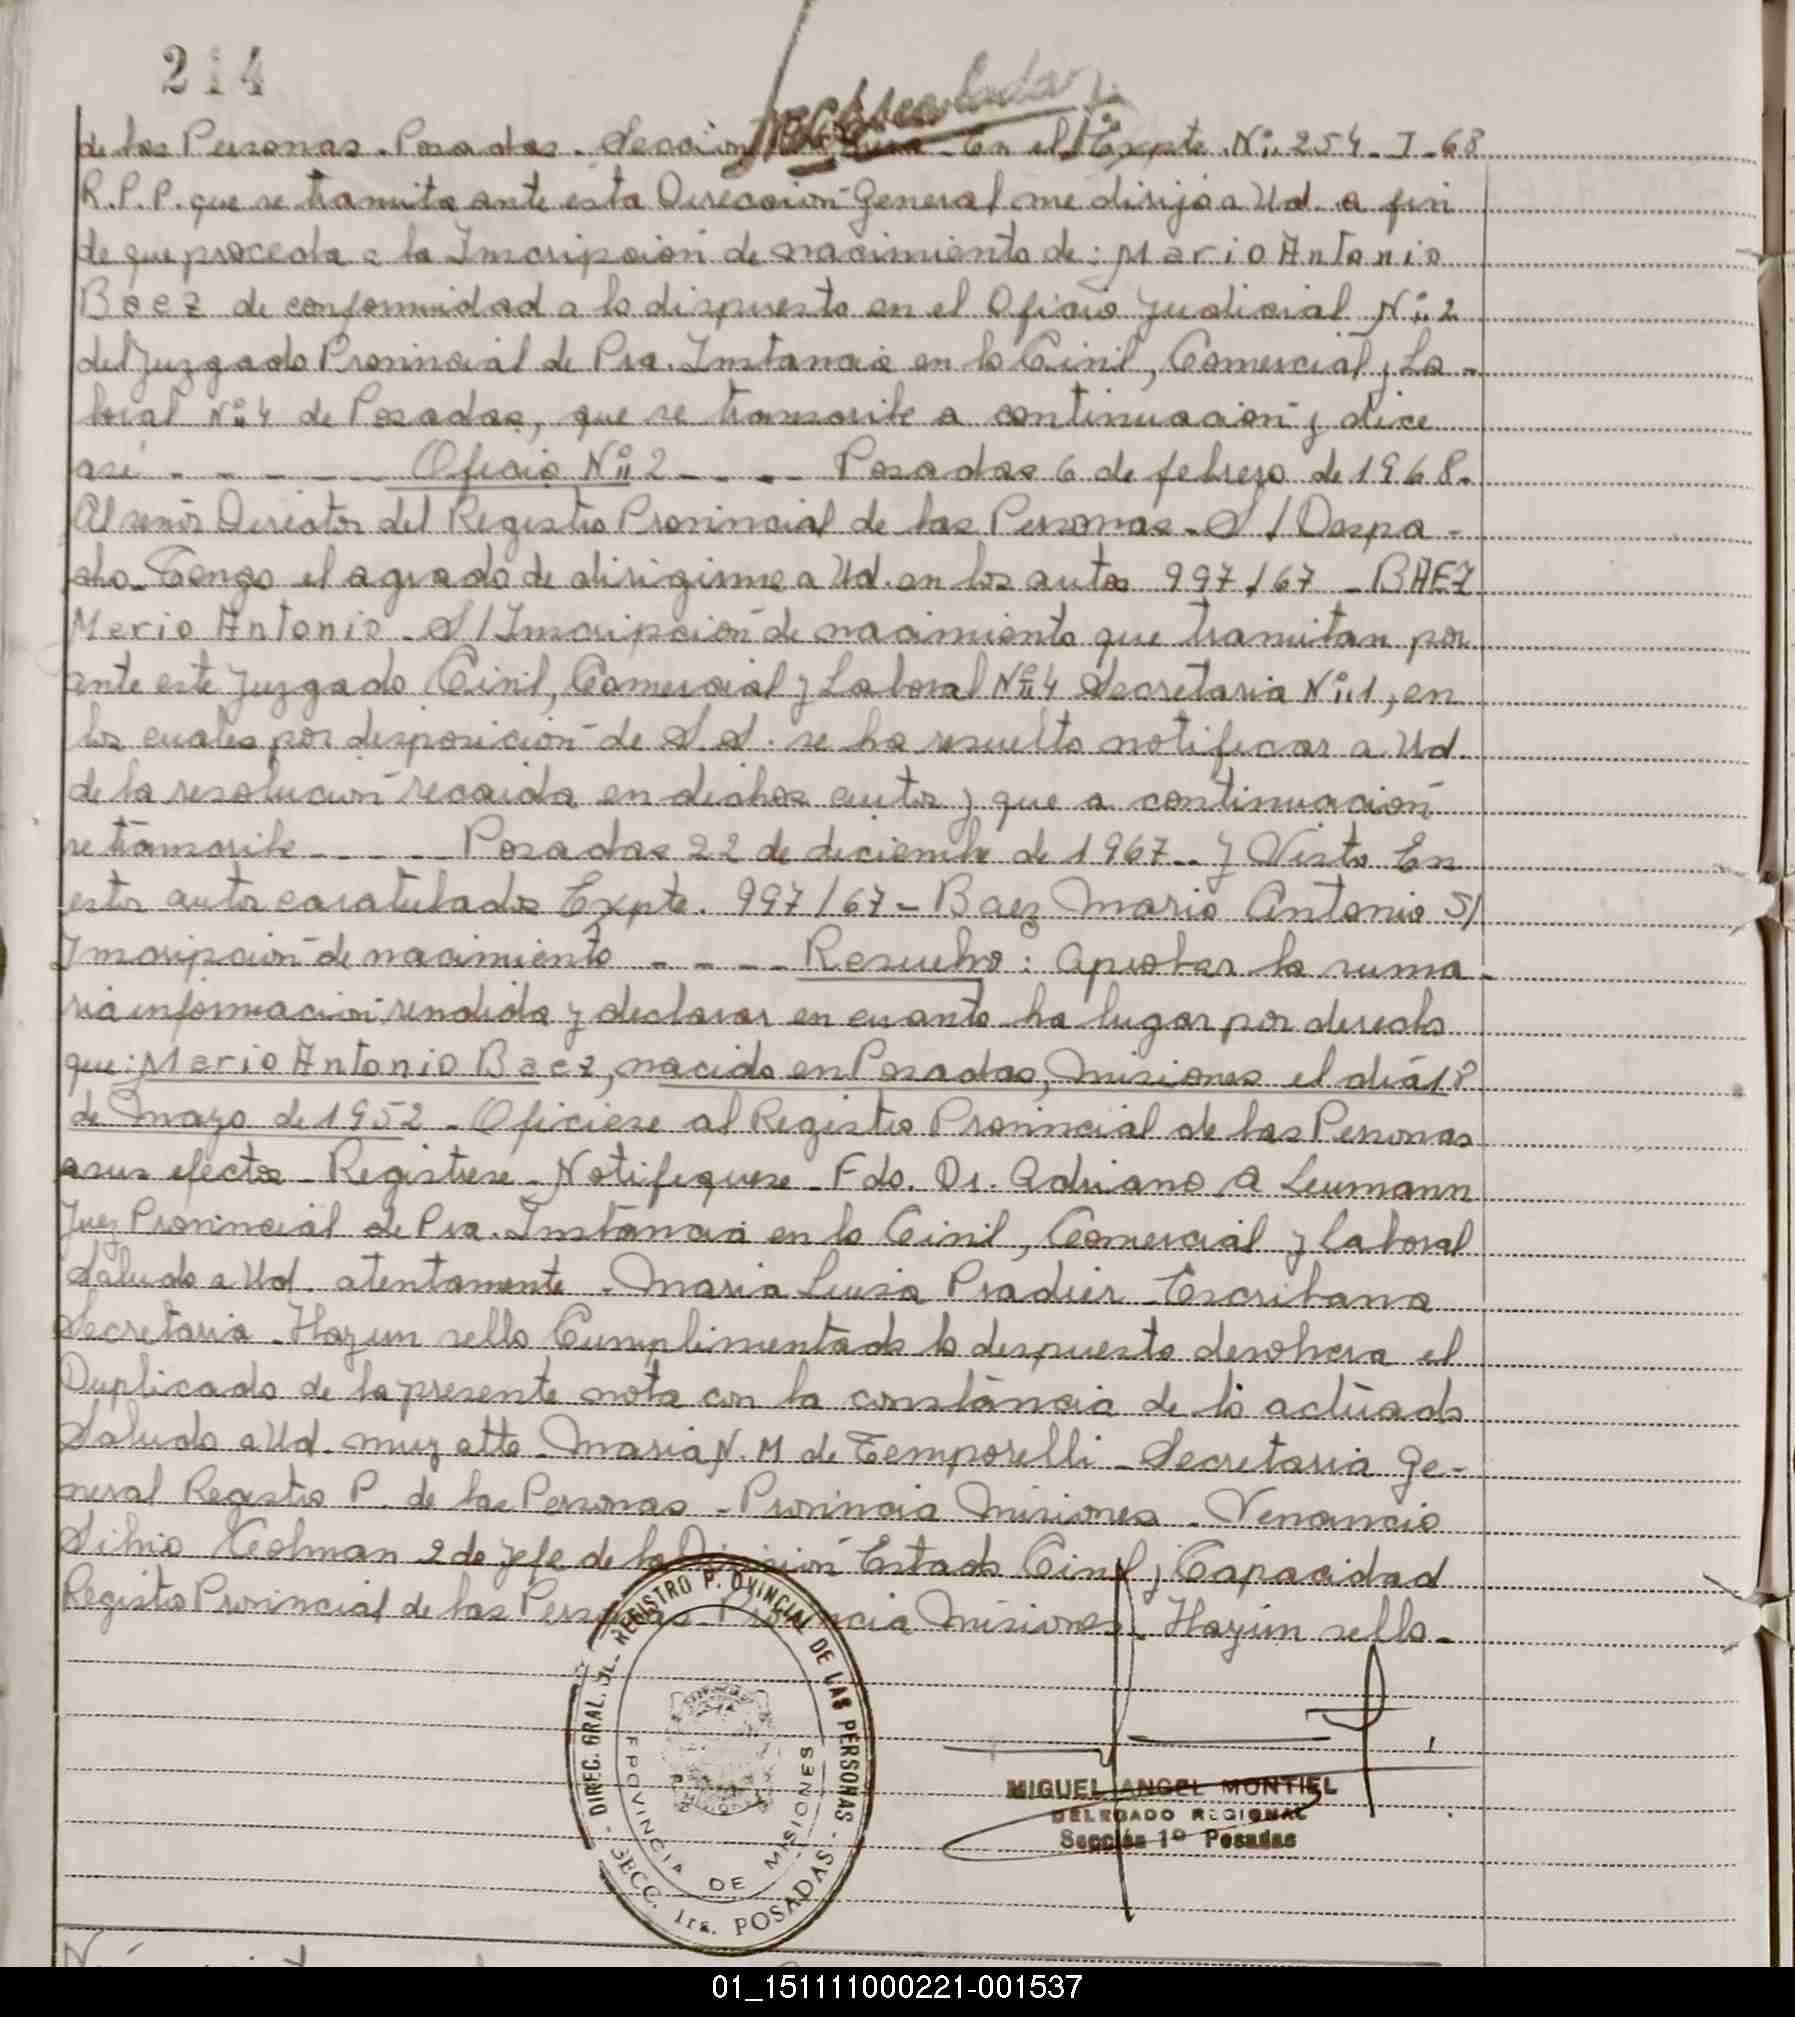 214
de las Personas. Posadas. Sección En el Expte. Nº 254-I-68
R.P.P. que se tramita ante esta Dirección General me dirijo a Ud. a fin
de que proceda a la Inscripción de nacimiento de: Mario Antonio
Baez de conformidad a lo dispuesto en el Oficio Judicial Nº 2
del Juzgado Provincial de Pra. Instancia en lo Civil, Comercial y La-
boral Nº 4 de Posadas, que se transcribe a continuación y dice
así - - - - - Oficio Nº 2 - - - - Posadas 6 de febrero de 1968.
Al señor Director del Registro Provincial de las Personas - S/Despa-
cho. Tengo el agrado de dirigirme a Ud. en los autos 997/67 - BAEZ
Mario Antonio - S/Inscripción de nacimiento que tramitan por
ante este Juzgado Civil, Comercial y Laboral Nº 4 Secretaria Nº 1, en
los cuales por disposición de S.S. se ha resuelto notificar a Ud.
de la resolución recaida en dichos autos y que a continuación
se transcribe - - - - - Posadas 22 de diciembre de 1967 - Y Visto En
estos autos caratulados Expte. 997/67 - Baez Mario Antonio S/
Inscripción de nacimiento - - - - Resuelvo: Aprobar la suma-
ria información rendida y declarar en cuanto ha lugar por derecho
que: Mario Antonio Baez, nacido en Posadas, Misiones el día 18
de Mayo de 1952 - Oficiese al Registro Provincial de las Personas
a sus efectos - Registrese - Notifiquese - Fdo. Dr. Adriano A Leumann
Juez Provincial de Pra. Instancia en lo Civil, Comercial y Laboral
Saludo a Ud. atentamente - Maria Luisa Pradier - Escribana
Secretaria - Hay un sello Cumplimentado lo dispuesto devolvera el
Duplicado de la presente nota con la constancia de lo actuado
Saludo a Ud. muy atte - Maria N. M de Temporelli - Secretaria Ge-
neral Registro P. de las Personas - Provincia Misiones - Venancio
Silvio 2do Jefe de la División Estado Civil y Capacidad
Registro Provincial de las Personas Provincia Misiones - Hay un sello -
DIREC. GRAL. DEL REGISTRO PROVINCIAL DE LAS PERSONAS
PROVINCIA DE MISIONES
SECC. 1ra. POSADAS
MIGUEL ANGEL MONTIEL
DELEGADO REGIONAL
Sección 1º Posadas
01_151111000221-001537